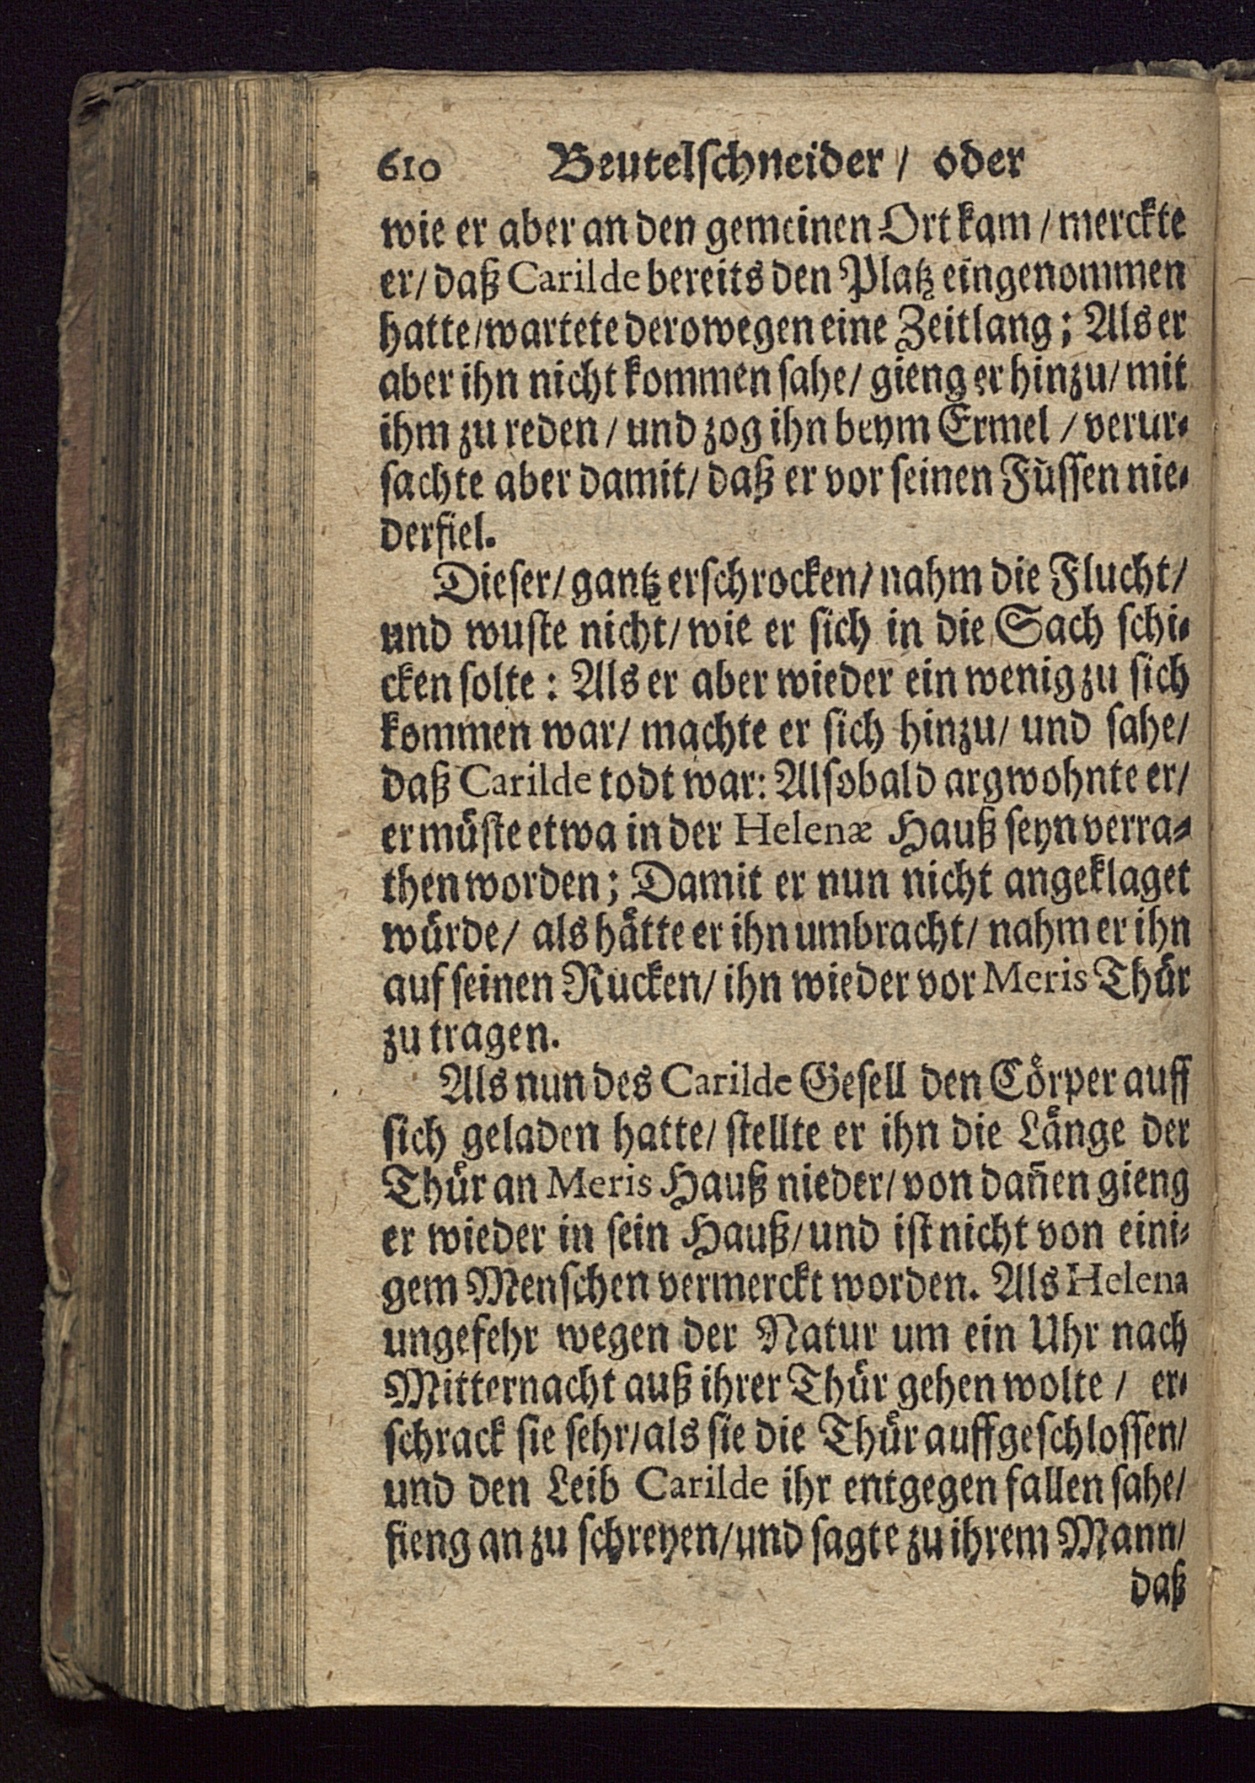 610 Beutelschneider / oder
wie er aber an den gemeinen Ort kam / merckte
er / daß Carilde bereits den Platz eingenommen
hatte / wartete derowegen eine Zeitlang; Als er
aber ihn nicht kommen sahe / gieng er hinzu / mit
ihm zu reden / und zog ihn beym Ermel / verur-
sachte aber damit / daß er vor seinen Füssen nie-
derfiel.
Dieser / gantz erschrocken / nahm die Flucht /
und wuste nicht / wie er sich in die Sach schi-
cken solte: Als er aber wieder ein wenig zu sich
kommen war / machte er sich hinzu / und sahe /
daß Carilde todt war: Alsobald argwohnte er /
er müste etwa in der Helenæ Hauß seyn verra-
then worden; Damit er nun nicht angeklaget
würde / als hätte er ihn umbracht / nahm er ihn
auf seinen Rucken / ihn wieder vor Meris Thür
zu tragen.
Als nun des Carilde Gesell den Cörper auff
sich geladen hatte / stellte er ihn die Länge der
Thür an Meris Hauß nieder / von dañen gieng
er wieder in sein Hauß / und ist nicht von eini-
gem Menschen vermerckt worden. Als Helena
ungefehr wegen der Natur um ein Uhr nach
Mitternacht auß ihrer Thür gehen wolte / er-
schrack sie sehr / als sie die Thür auffgeschlossen /
und den Leib Carilde ihr entgegen fallen sahe /
fieng an zu schreyen / und sagte zu ihrem Mann /
daß